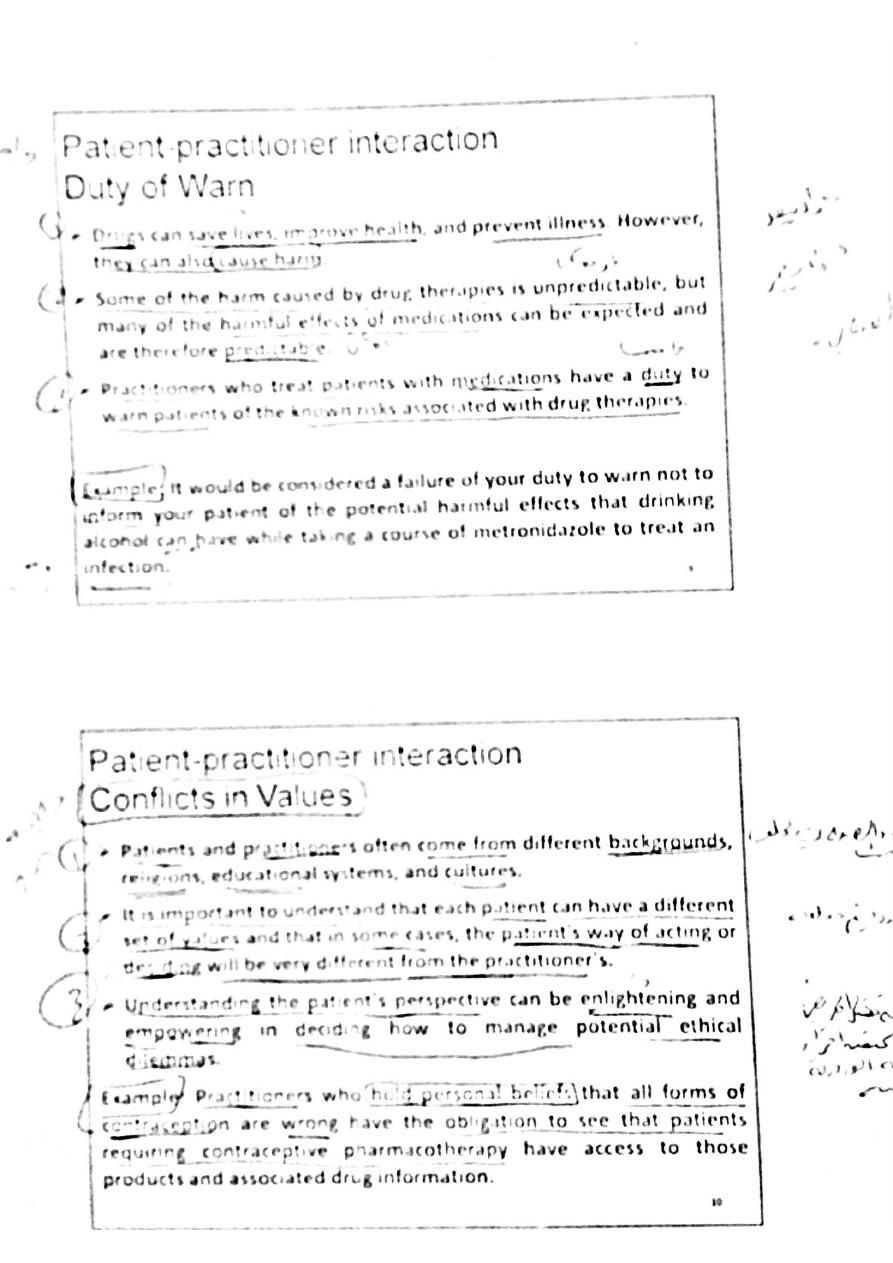 Patient-practitioner interaction
Duty of Warn
Drugs can save lives, improve health, and prevent illness. However,
they can also cause harm.
Some of the harm caused by drug therapies is unpredictable, but
many of the harmful effects of medications can be expected and
are therefore predictable.
Practitioners who treat patients with medications have a duty to
warn patients of the known risks associated with drug therapies.
Example: It would be considered a failure of your duty to warn not to
inform your patient of the potential harmful effects that drinking
alcohol can have while taking a course of metronidazole to treat an
infection.
Patient-practitioner interaction
Conflicts in Values
1 Patients and practitioners often come from different backgrounds,
religions, educational systems, and cultures.
2 It is important to understand that each patient can have a different
set of values and that in some cases, the patient's way of acting or
deciding will be very different from the practitioner's.
3 Understanding the patient's perspective can be enlightening and
empowering in deciding how to manage potential ethical
dilemmas.
Example Practitioners who hold personal beliefs that all forms of
contraception are wrong have the obligation to see that patients
requiring contraceptive pharmacotherapy have access to those
products and associated drug information.
10